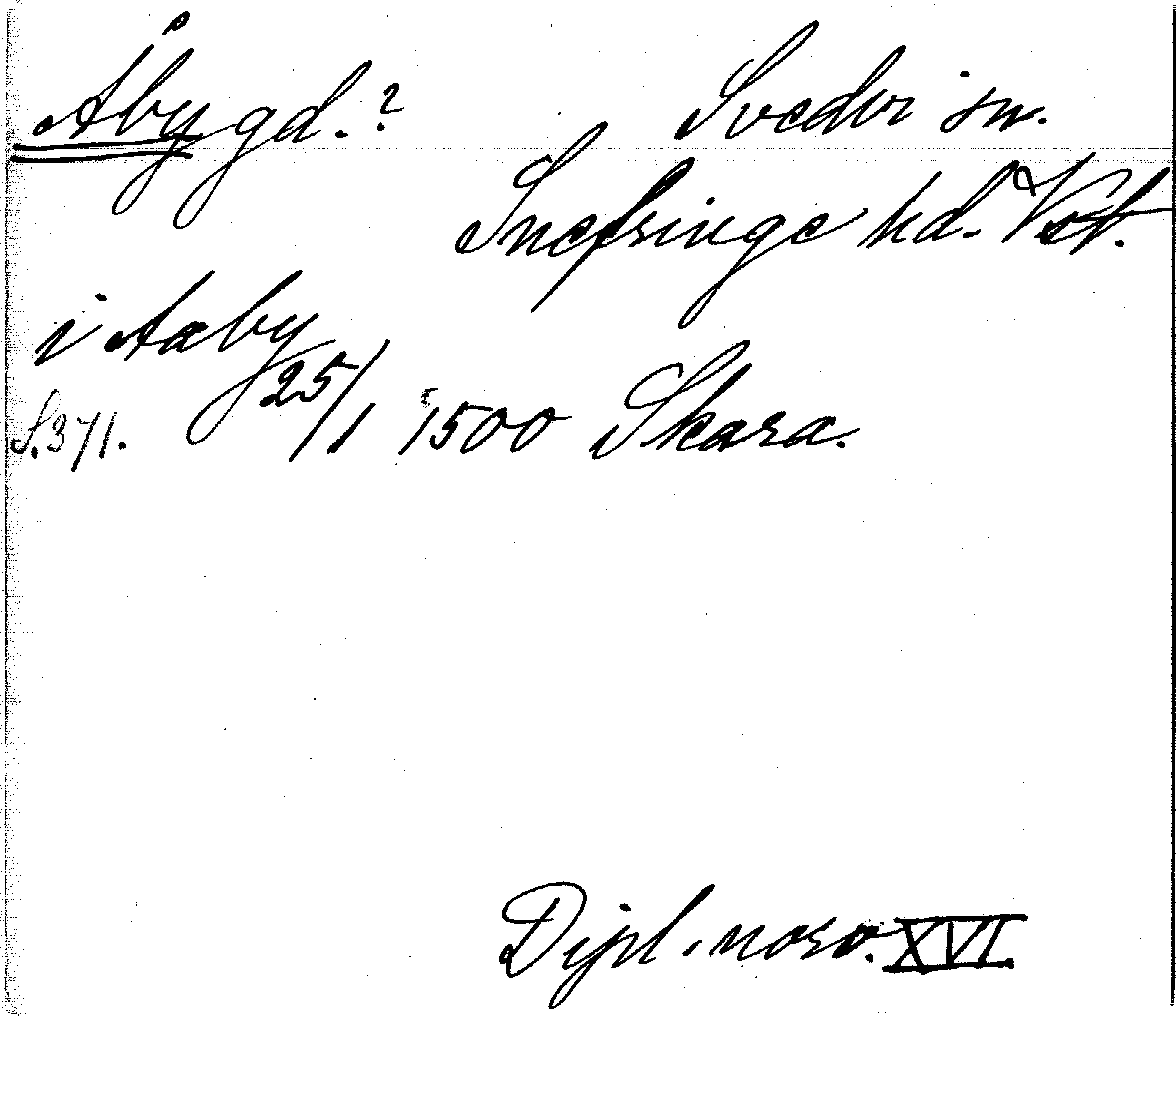 Åby gd.? Svedvi sn.
Snefringe hd. Vstl.
i Aaby
S. 371. 25/1 1500 Skara.
Dipl. norv. XVI